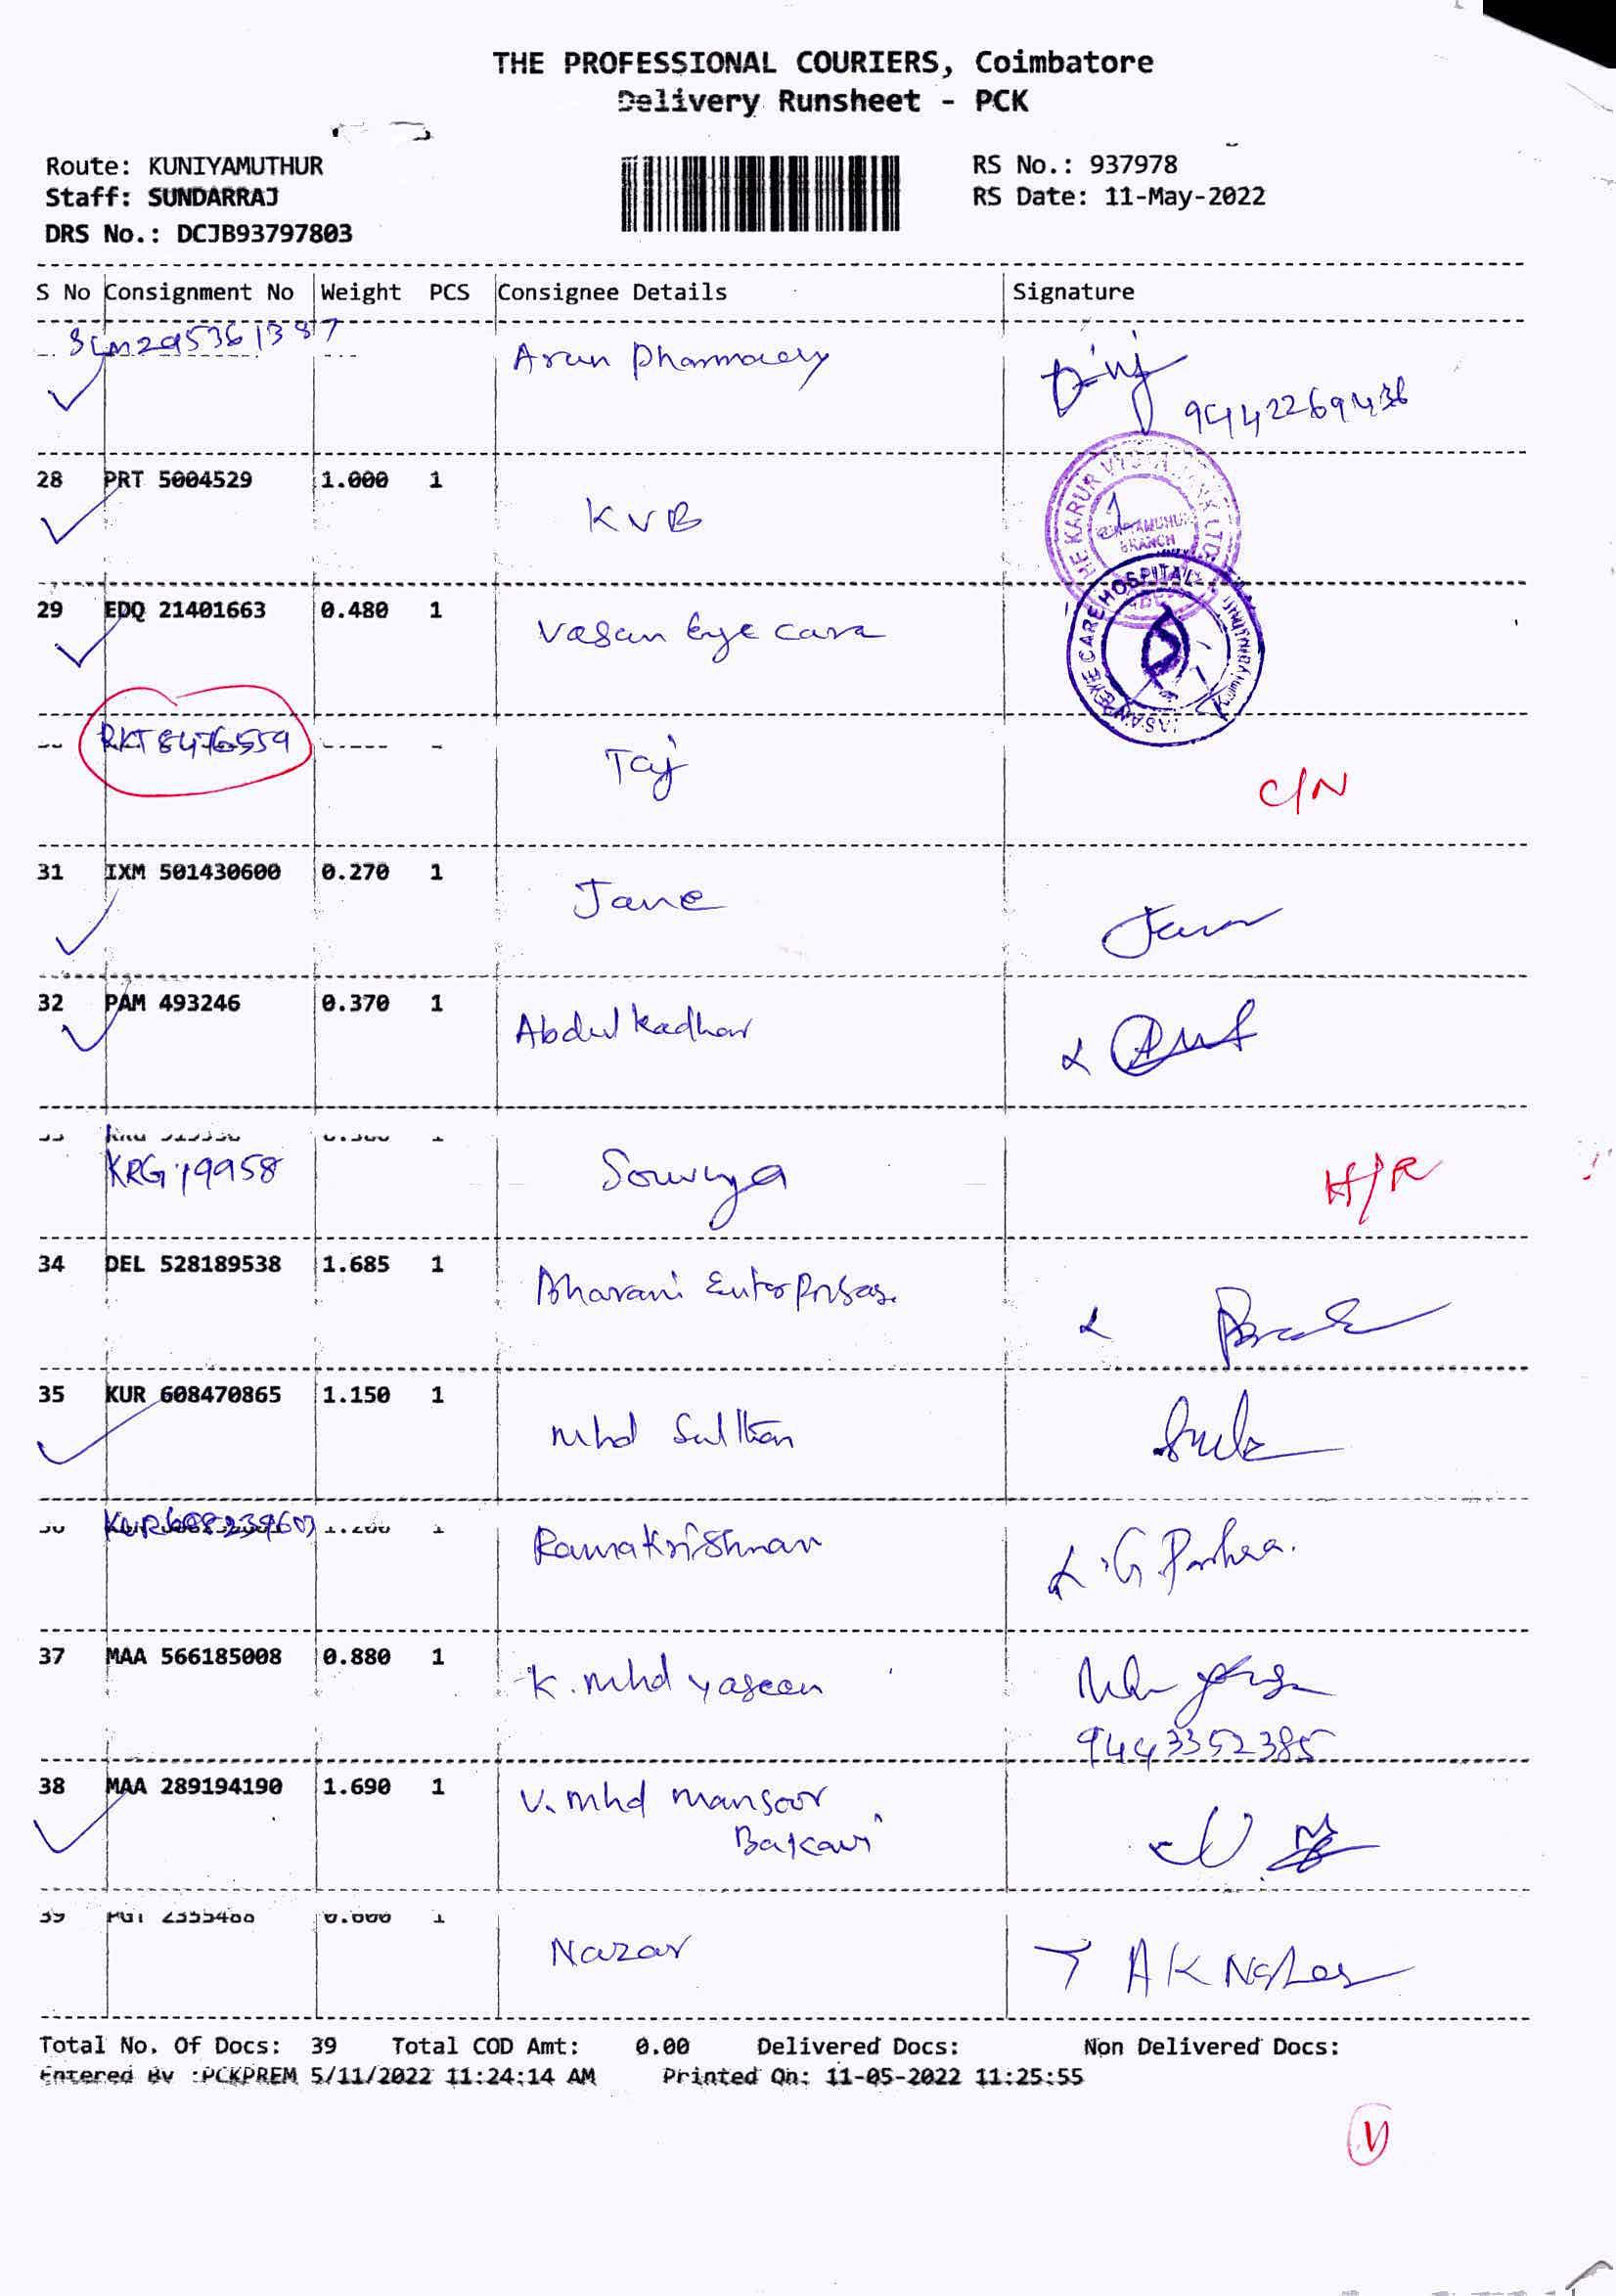 THE PROFESSIONAL COURIERS, Coimbatore
Delivery Runsheet - PCK
Route: KUNIYAMUTHUR
Staff: SUNDARRAJ
DRS No.: DCJB93797803
RS No.: 937978
RS Date: 11-May-2022
S No Consignment No Weight PCS Consignee Details Signature
Arun Pharmacy
28 PRT 5004529 1.000 1
KVB
BRANCH
29 EDQ 21401663 0.480 1
Vasan Eye care
EYE CARE HOSPITAL
RKT8476559
Taj
C/N
31 IXM 501430600 0.270 1
Jane
32 PAM 493246 0.370 1
Abdul Kadhar
KRG 19958
Sowmya
H/R
34 DEL 528189538 1.685 1
Bharani Enterprises.
35 KUR 608470865 1.150 1
Mhd Sulthan
Ramakrishnan
37 MAA 566185008 0.880 1
K. Mhd yaseen
9443352385
38 MAA 289194190 1.690 1
V. Mhd Mansoor
Bakavi
Nazar
A K
Total No. Of Docs: 39 Total COD Amt: 0.00 Delivered Docs: Non Delivered Docs:
Entered By :PCKPREM 5/11/2022 11:24:14 AM Printed On: 11-05-2022 11:25:55